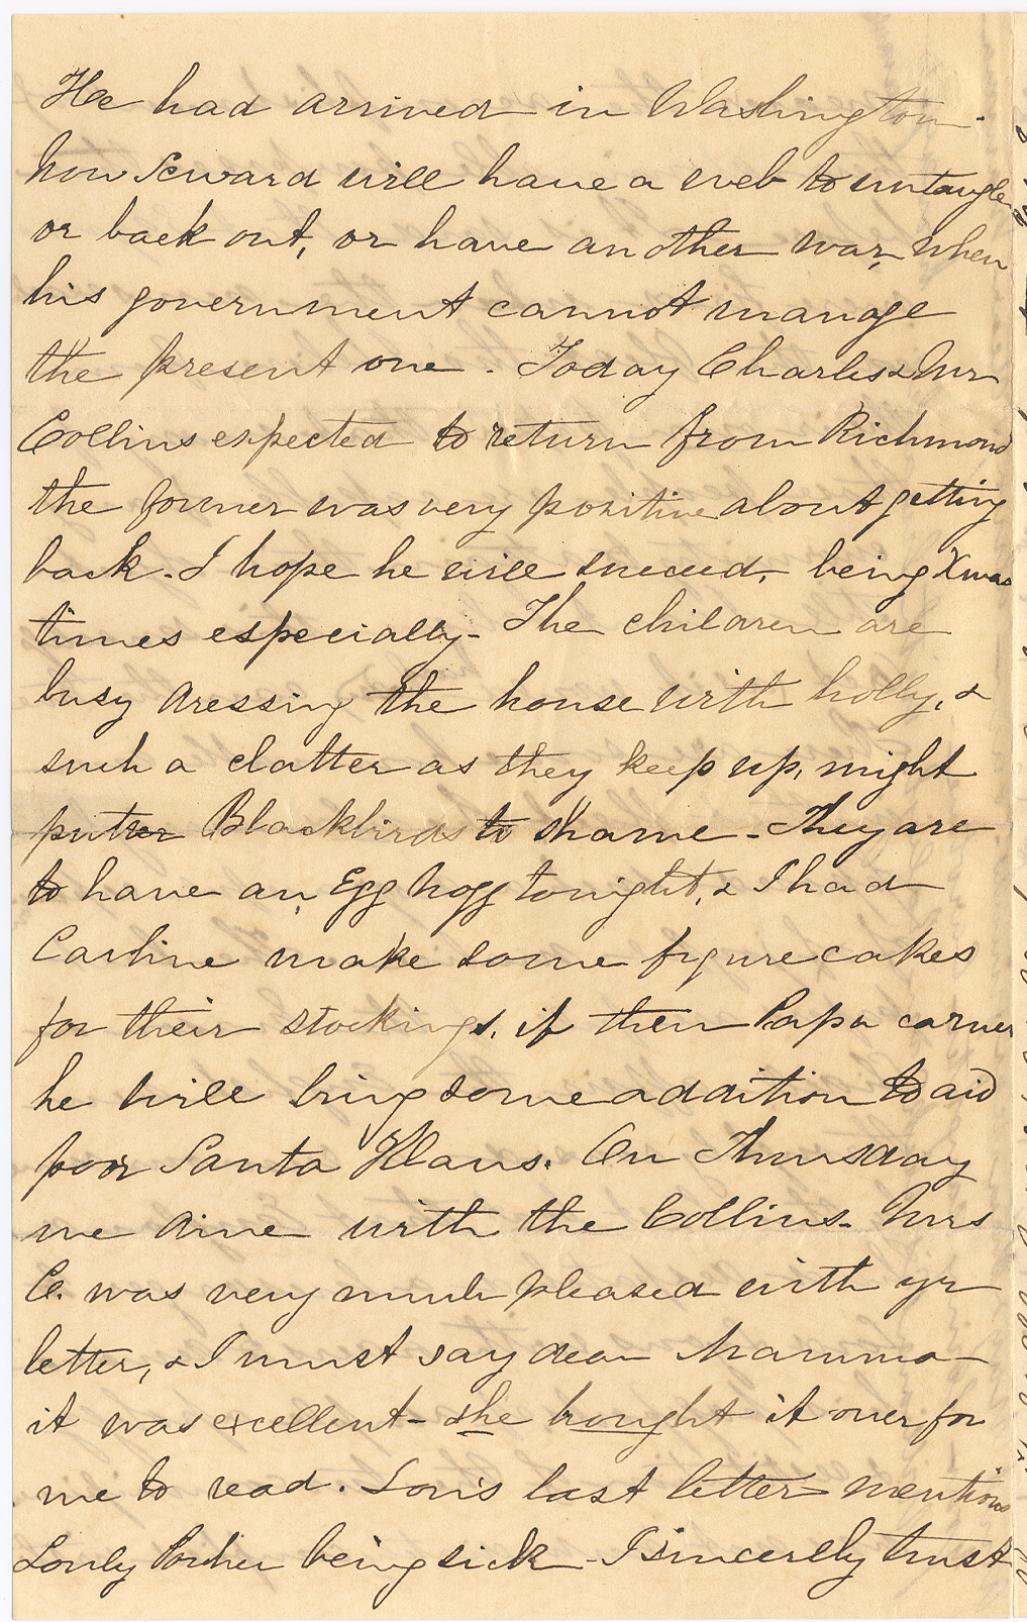 He had arrived in Washington.
Now Seward will have a web to untangle,
or back out, or have another war, when
his government cannot manage
the present one. Today Charles & Mr
Collins expected to return from Richmond
the former was very positive about getting
back. I hope he will succeed, being Xmas
times especially - The children are
busy dressing the house with holly, &
such a clatter as they keep up, might
put Blackbirds to shame - They are
to have an Egg Nogg tonight, & I had
Carline make some figure cakes
for their stockings, if then Papa comes
he will bring some addition to aid
poor Santa Klaus. On Thursday
we dine with the Collins - Mrs
C. was very much pleased with yr
letter, & I must say dear Mamma
it was excellent - she brought it over for
me to read. Lou's last letter mentions
being sick - I sincerely trust